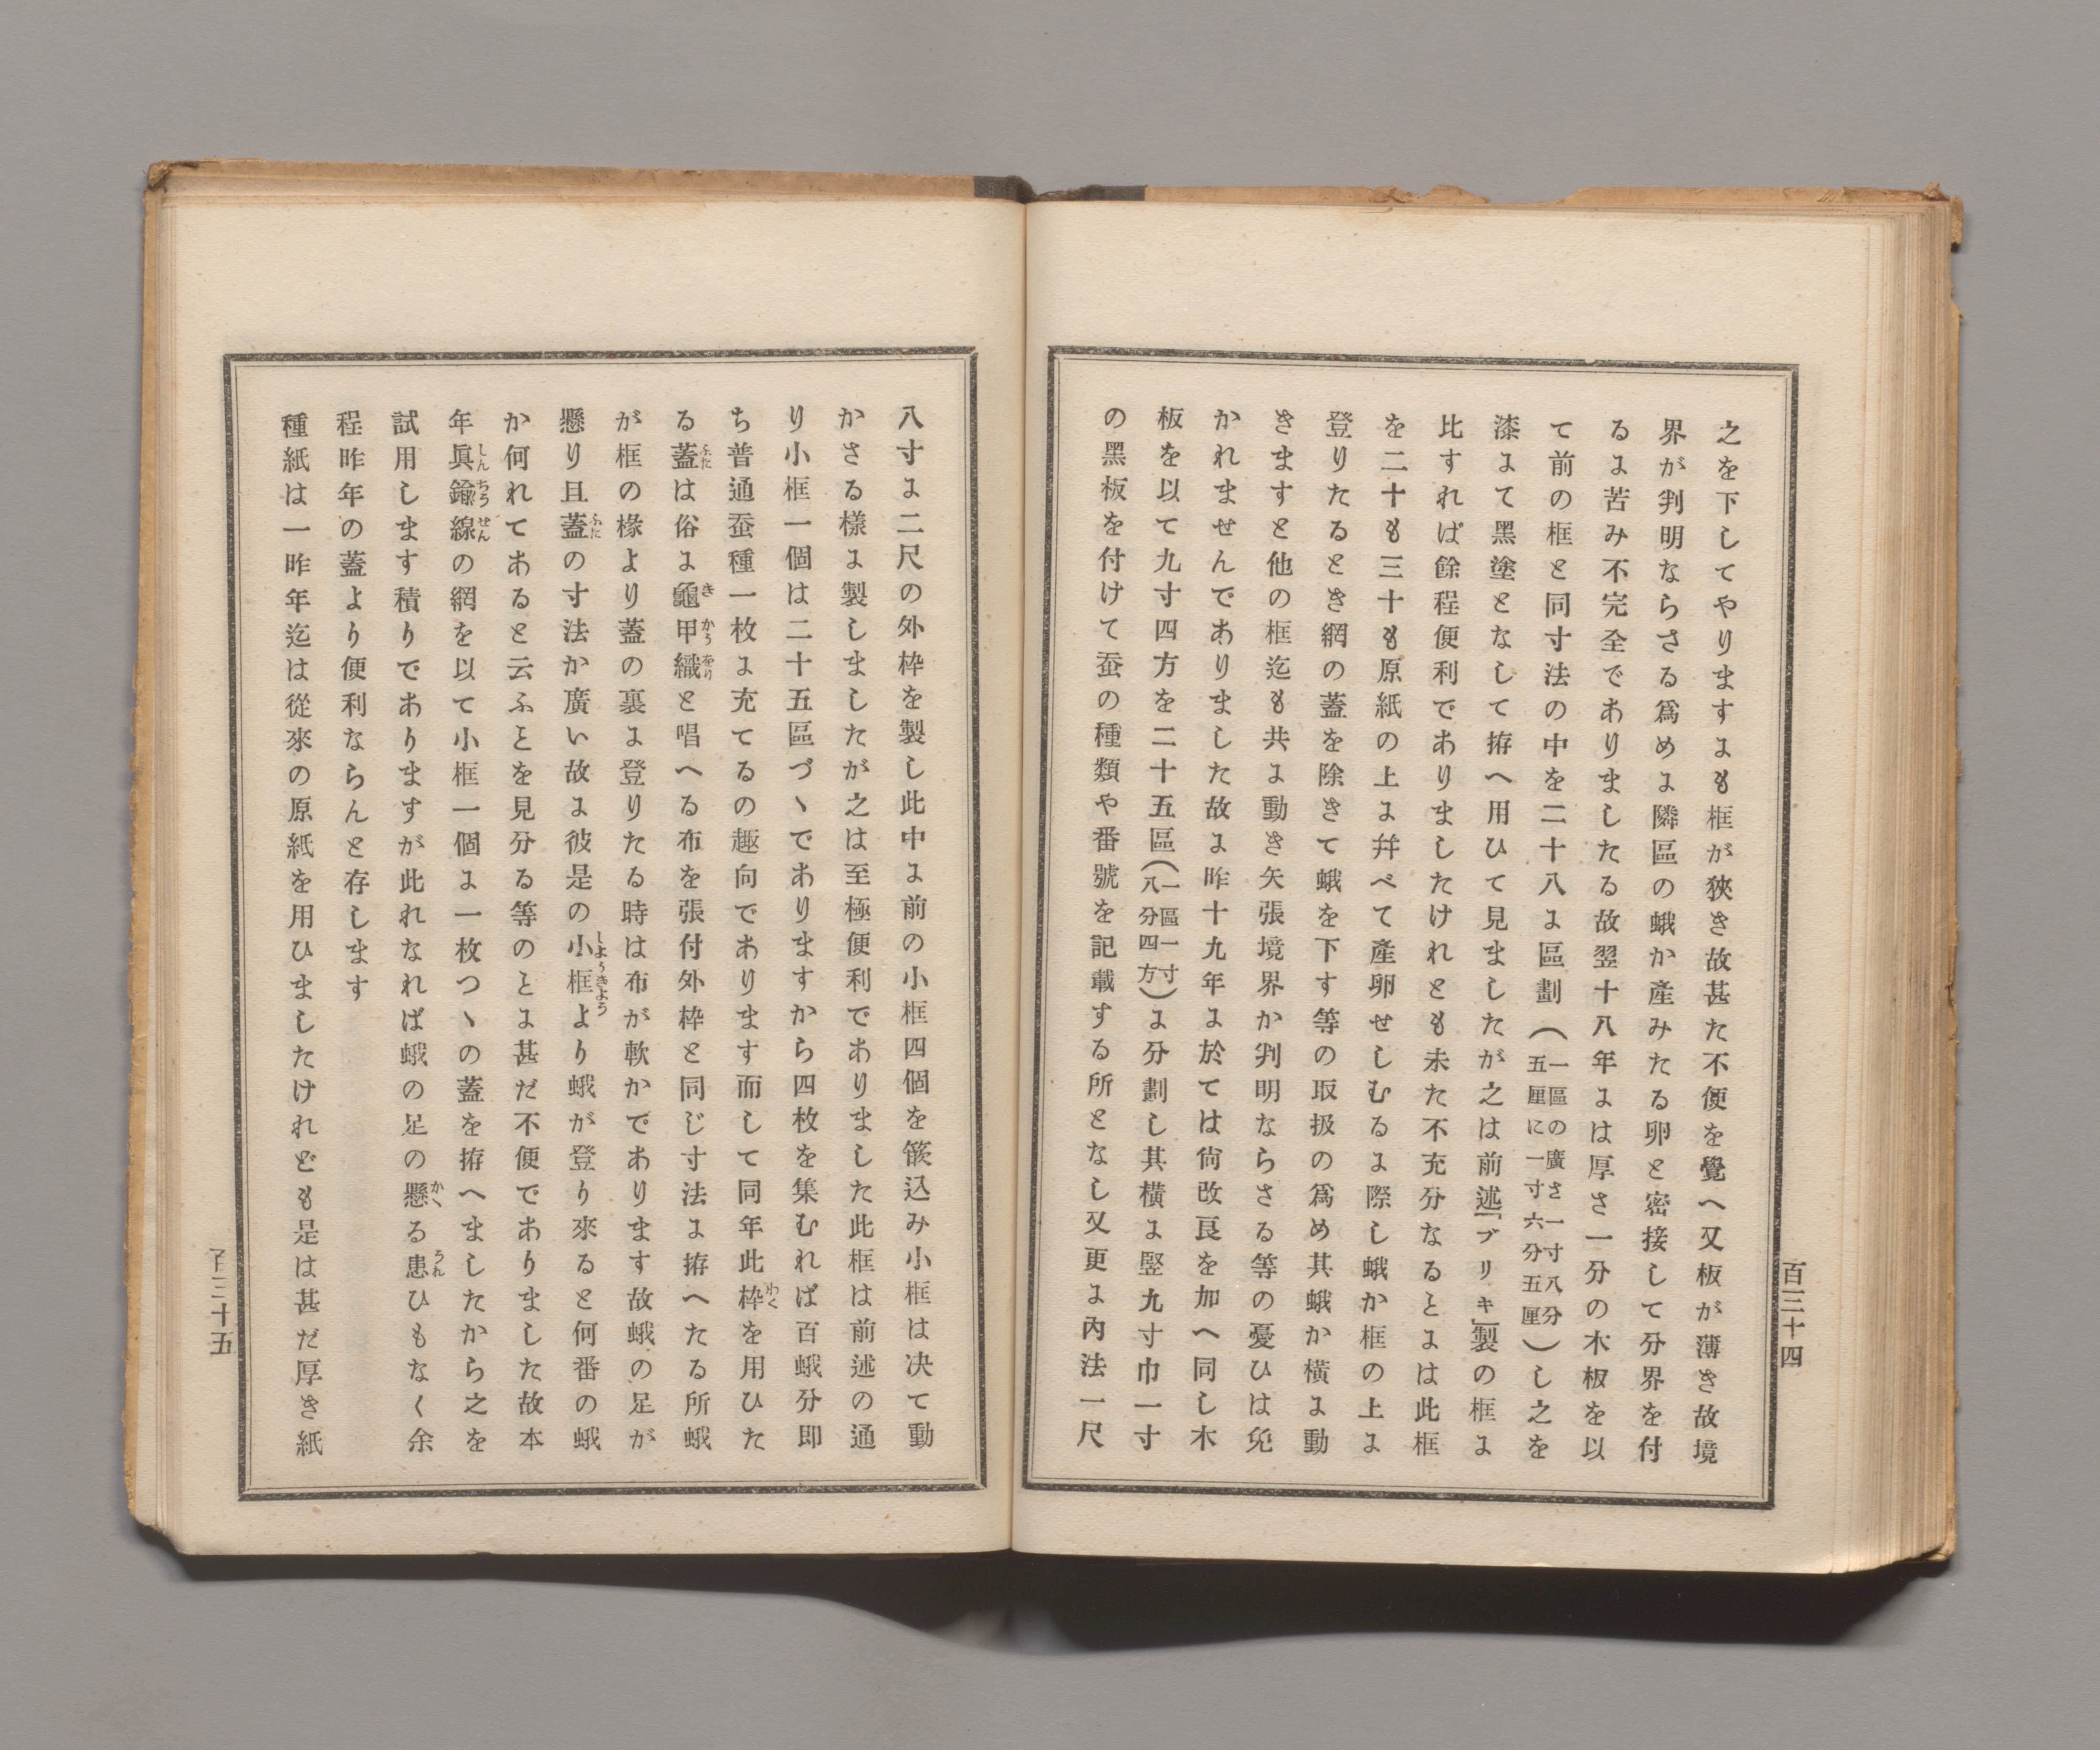 百三十四
之を下してやりますにも框が狹き故甚た不便を覺へ又板が薄き故境
界が判明ならさる爲めに隣區の蛾か產みたる卵と密接して分界を付
るに苦み不完全でありましたる故翌十八年には厚さ一分の木板を以
て前の框と同寸法の中を二十八に區劃(一區の廣さ一寸八分五厘に一寸六分五厘)し之を
漆にて黑塗となして拵へ用ひて見ましたが之は前述「ブリキ」製の框に
比すれば餘程便利でありましたけれとも未た不充分なるとには此框
を二十も三十も原紙の上に幷べて產卵せしむるに際し蛾か框の上に
登りたるとき網の蓋を除きて蛾を下す等の取扱の爲め其蛾か橫に動
きますと他の框迄も共に動き矢張境界か判明ならさる等の憂ひは免
かれませんでありました故に昨十九年に於ては尙改良を加へ同し木
板を以て九寸四方を二十五區(一區一寸八分四方)に分劃し其橫に竪九寸巾一寸
の黑板を付けて蚕の種類や番號を記載する所となし又更に內法一尺
八寸に二尺の外枠を製し此中に前の小框四個を篏込み小框は决て動
かさる樣に製しましたが之は至極便利でありました此框は前述の通
り小框一個は二十五區づヽでありますから四枚を集むれば百蛾分即
ち普通蚕種一枚に充てるの趣向であります而して同年此枠を用ひた
る蓋は俗に龜甲織と唱へる布を張付外枠と同じ寸法に拵へたる所蛾
が框の椽より蓋の裏に登りたる時は布が軟かであります故蛾の足が
懸り且蓋の寸法か廣い故に彼是の小框より蛾が登り來ると何番の蛾
か何れてあると云ふとを見分る等のとに甚だ不便でありました故本
年眞鍮線の網を以て小框一個に一枚つヽの蓋を拵へましたから之を
試用します積りでありますが此れなれば蛾の足の懸る患ひもなく余
程昨年の蓋より便利ならんと存します
種紙は一昨年迄は從來の原紙を用ひましたけれども是は甚だ厚き紙
百三十五